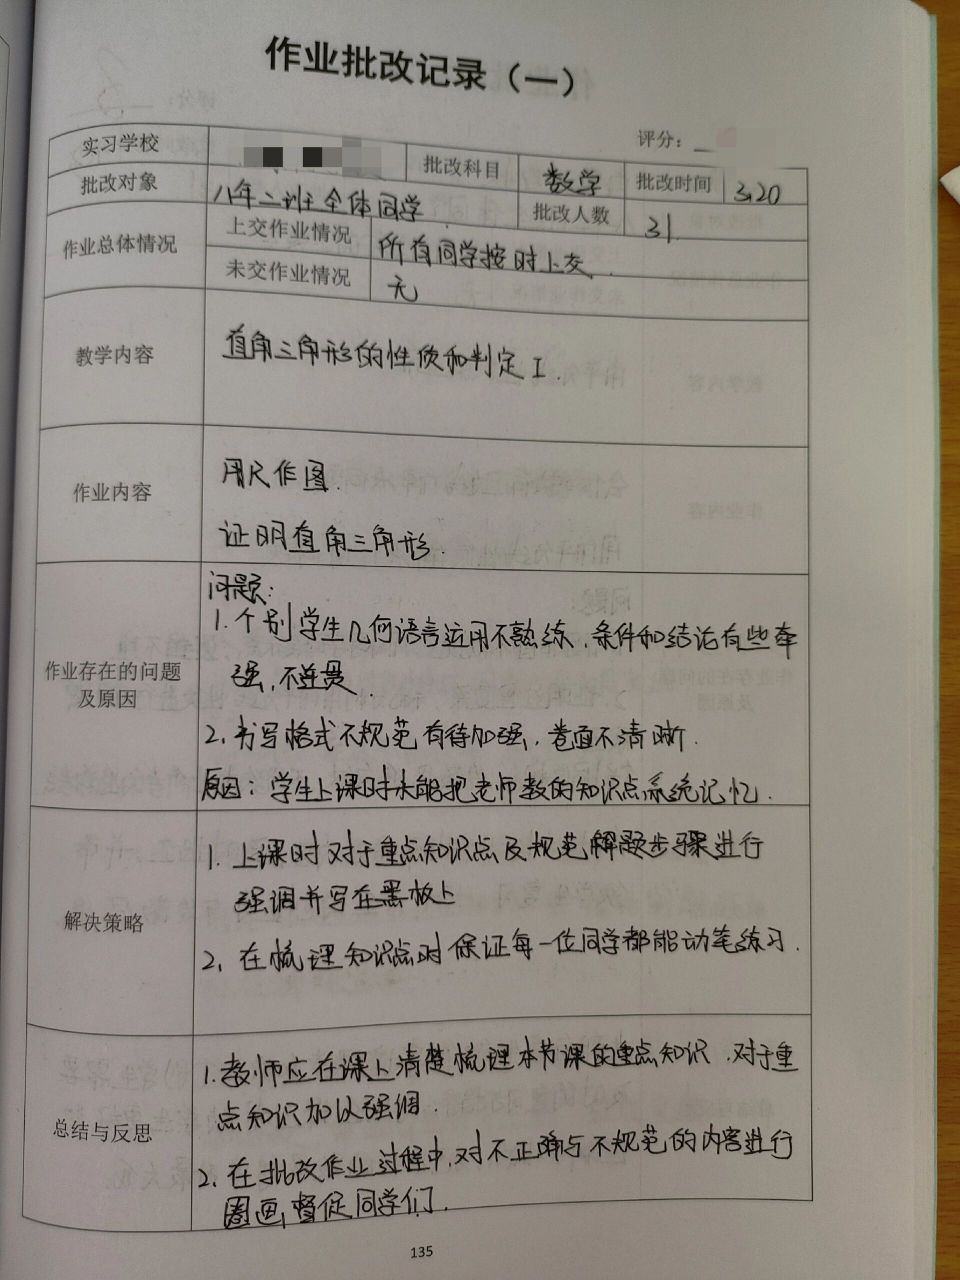 作业批改记录（一）
评分：
实习学校
批改科目
数学
批改时间
3.20
批改对象
八年二班全体同学
批改人数
31
作业总体情况
上交作业情况
所有同学按时上交.
未交作业情况
无
教学内容
直角三角形的性质和判定I.
作业内容
用尺作图.
证明直角三角形.
作业存在的问题
及原因
问题:
1.个别学生几何语言运用不熟练，条件和结论有些牵
强，不连贯.
2.书写格式不规范有待加强，卷面不清晰.
原因：学生上课时未能把老师教的知识点系统记忆.
解决策略
1.上课时对于重点知识点及规范解题步骤进行
强调并写在黑板上
2.在梳理知识点时保证每一位同学都能动笔练习.
总结与反思
1.教师应在课上清楚梳理本节课的重点知识，对于重
点知识加以强调.
2.在批改作业过程中，对不正确与不规范的内容进行
圈画，督促同学们.
135